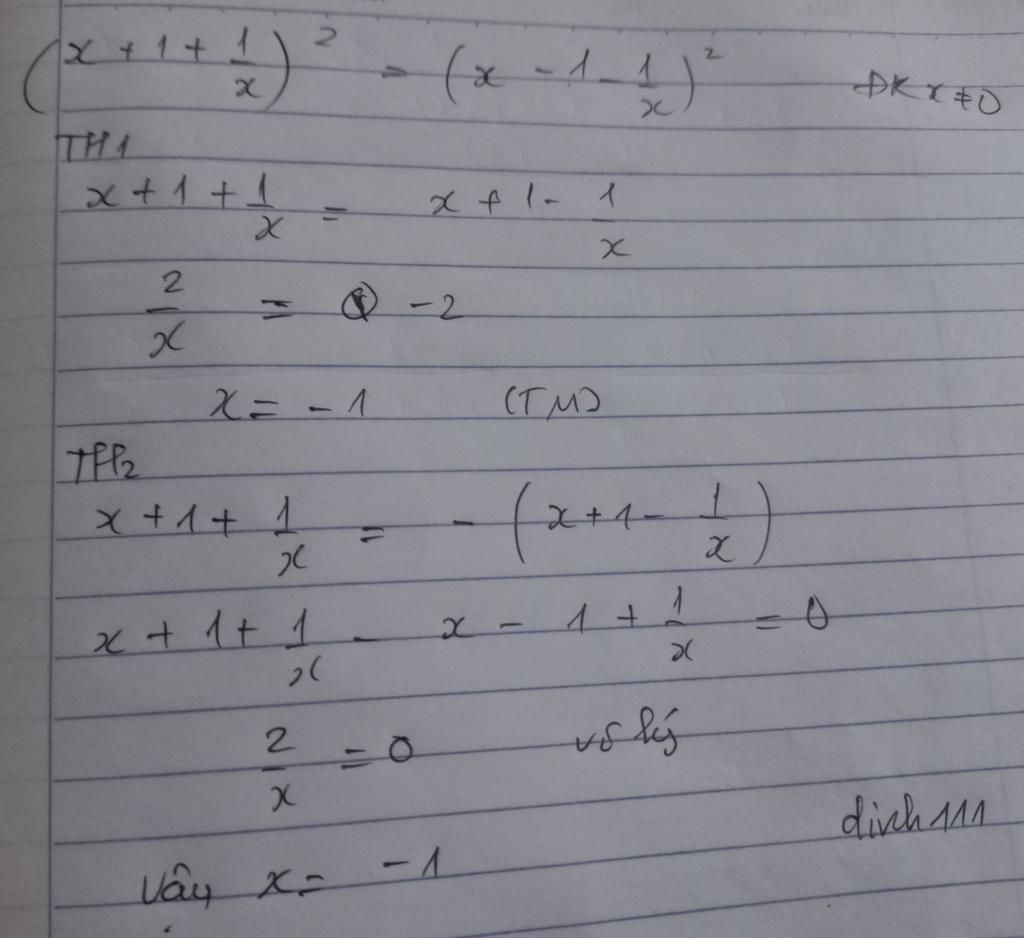 (x + 1 + 1/x)² = (x - 1 - 1/x)² ĐK x ≠ 0
TH1
x + 1 + 1/x = x + 1 - 1/x
2/x = -2
x = -1 (TM)
TH2
x + 1 + 1/x = - (x + 1 - 1/x)
x + 1 + 1/x - x - 1 + 1/x = 0
2/x = 0 vô lý
divch111
Vây x = -1